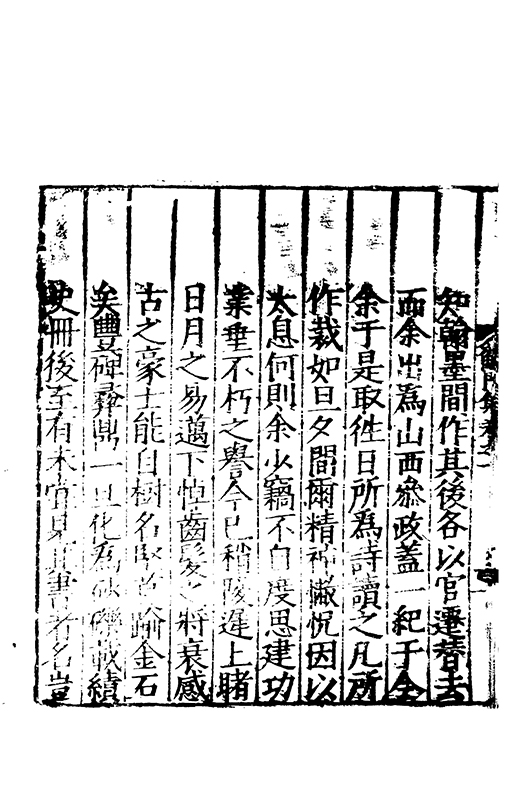 知翰墨間作其後各以官遷替去
而余出為山西叅政蓋一紀于今
余于是取徃日所為詩讀之凡所
作裁如旦夕間爾精神懒怳因以
太息何則余少竊不自度思建功
業垂不朽之譽今已稍陵遲上睹
日月之易邁下悼齒髮之將衰感
古之豪士能自樹名堅逾金石
矣豊碑彛鼎一旦化為砂礫載績
史冊後至有未嘗見其書者名豈